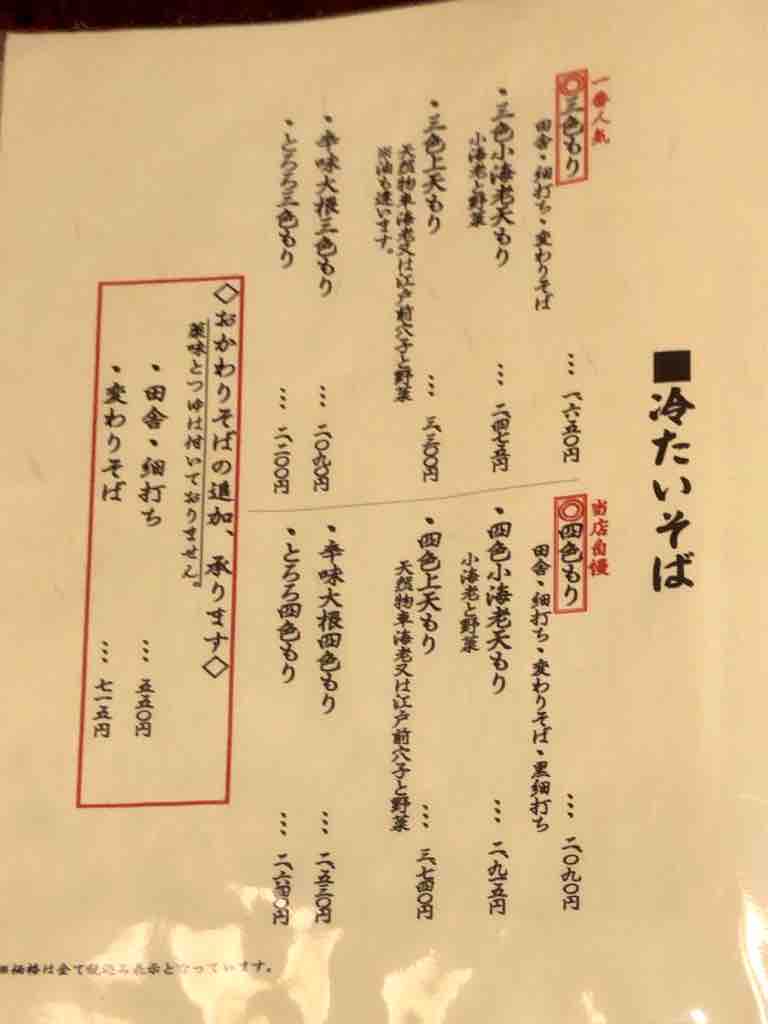 ■冷たいそば
一番人気
◎三色もり
田舎・細打ち・変わりそば
… 一、六五〇円
・三色小海老天もり
小海老と野菜
… 二、四七五円
・三色上天もり
天然物車海老又は江戸前穴子と野菜
※油も違います。
… 三、三〇〇円
・辛味大根三色もり
… 二、〇九〇円
・とろろ三色もり
… 二、二〇〇円
当店自慢
◎四色もり
田舎・細打ち・変わりそば・黒細打ち
… 二、〇九〇円
・四色小海老天もり
小海老と野菜
… 二、九一五円
・四色上天もり
天然物車海老又は江戸前穴子と野菜
… 三、七四〇円
・辛味大根四色もり
… 二、五三〇円
・とろろ四色もり
… 二、六四〇円
◇おかわりそばの追加、承ります◇
薬味とつゆは付いておりません。
・田舎・細打ち
… 五五〇円
・変わりそば
… 七一五円
※価格は全て税込み表示となっています。